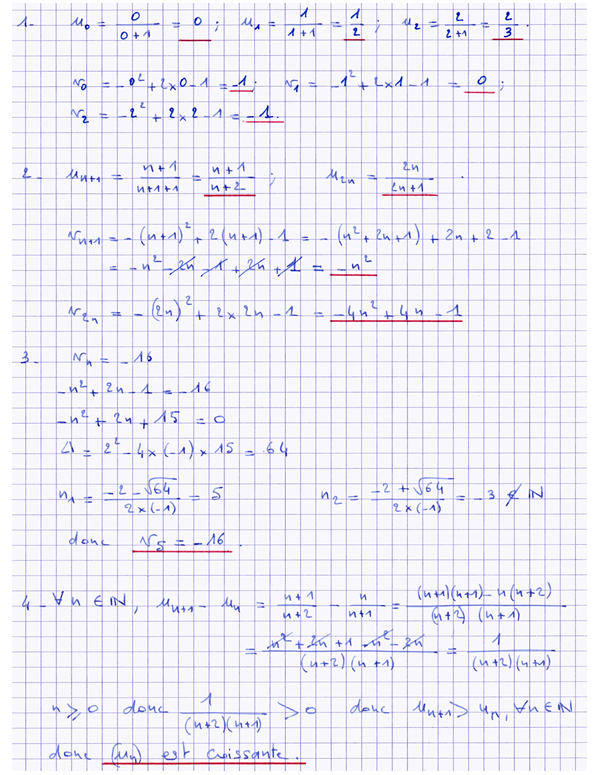 1- u₀ = 0/(0+1) = 0 ; u₁ = 1/(1+1) = 1/2 ; u₂ = 2/(2+1) = 2/3.
v₀ = -0² + 2×0 - 1 = -1 ; v₁ = -1² + 2×1 - 1 = 0 ;
v₂ = -2² + 2×2 - 1 = -1.
2- uₙ₊₁ = (n+1)/(n+1+1) = (n+1)/(n+2) ; u₂ₙ = 2n/(2n+1) .
vₙ₊₁ = -(n+1)² + 2(n+1) - 1 = -(n² + 2n + 1) + 2n + 2 - 1
= -n² - 2n - 1 + 2n + 1 = -n²
v₂ₙ = -(2n)² + 2×2n - 1 = -4n² + 4n - 1
3- vₙ = -16
-n² + 2n - 1 = -16
-n² + 2n + 15 = 0
Δ = 2² - 4×(-1)×15 = 64
n₁ = (-2 - √64)/(2×(-1)) = 5 n₂ = (-2 + √64)/(2×(-1)) = -3 ∉ ℕ
donc v₅ = -16 .
4- ∀n ∈ ℕ, uₙ₊₁ - uₙ = (n+1)/(n+2) - n/(n+1) = ((n+1)(n+1) - n(n+2))/((n+2)(n+1))
= (n² + 2n + 1 - n² - 2n)/((n+2)(n+1)) = 1/((n+2)(n+1))
n ⩾ 0 donc 1/((n+2)(n+1)) > 0 donc uₙ₊₁ > uₙ, ∀n ∈ ℕ
donc (uₙ) est croissante.